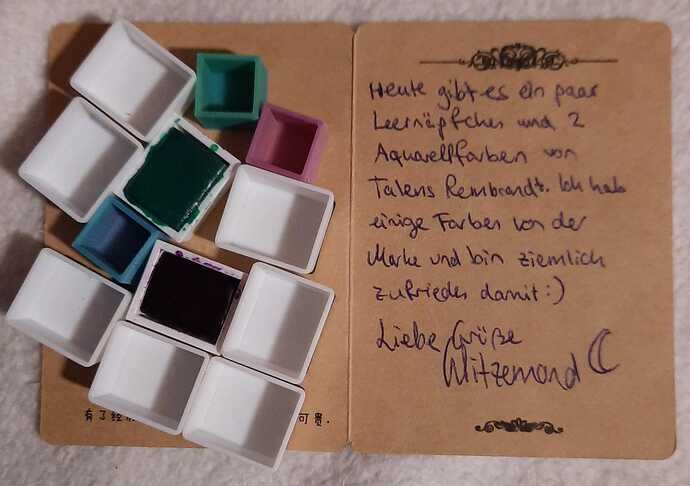 有了经
可贵.
Heute gibt es ein paar
Leernäpfchen und 2
Aquarellfarben von
Talens Rembrandt. Ich hab
einige Farben von der
Marke und bin ziemlich
zufrieden damit :)
Liebe Grüße
Witzemond